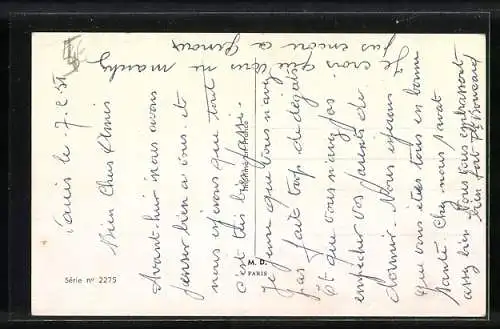 Paris le 7.2.51
Bien Chers Amis
Avant-hier nous avons
penser bien a vous. et
nous espérons que tout
c'est très bien passé.
Je pense que vous n'avez
pas fait trop de dégats
et que vous n'avez pas
empêcher vos parents de
dormir. Nous espérons
que vous êtes tous en bonne
santé. Chez nous sa va
assez bien. Nous vous embrassons
bien fort
Je crois que vous ne manchy
pas encore a Genoux
M. D.
PARIS
Série n° 2275